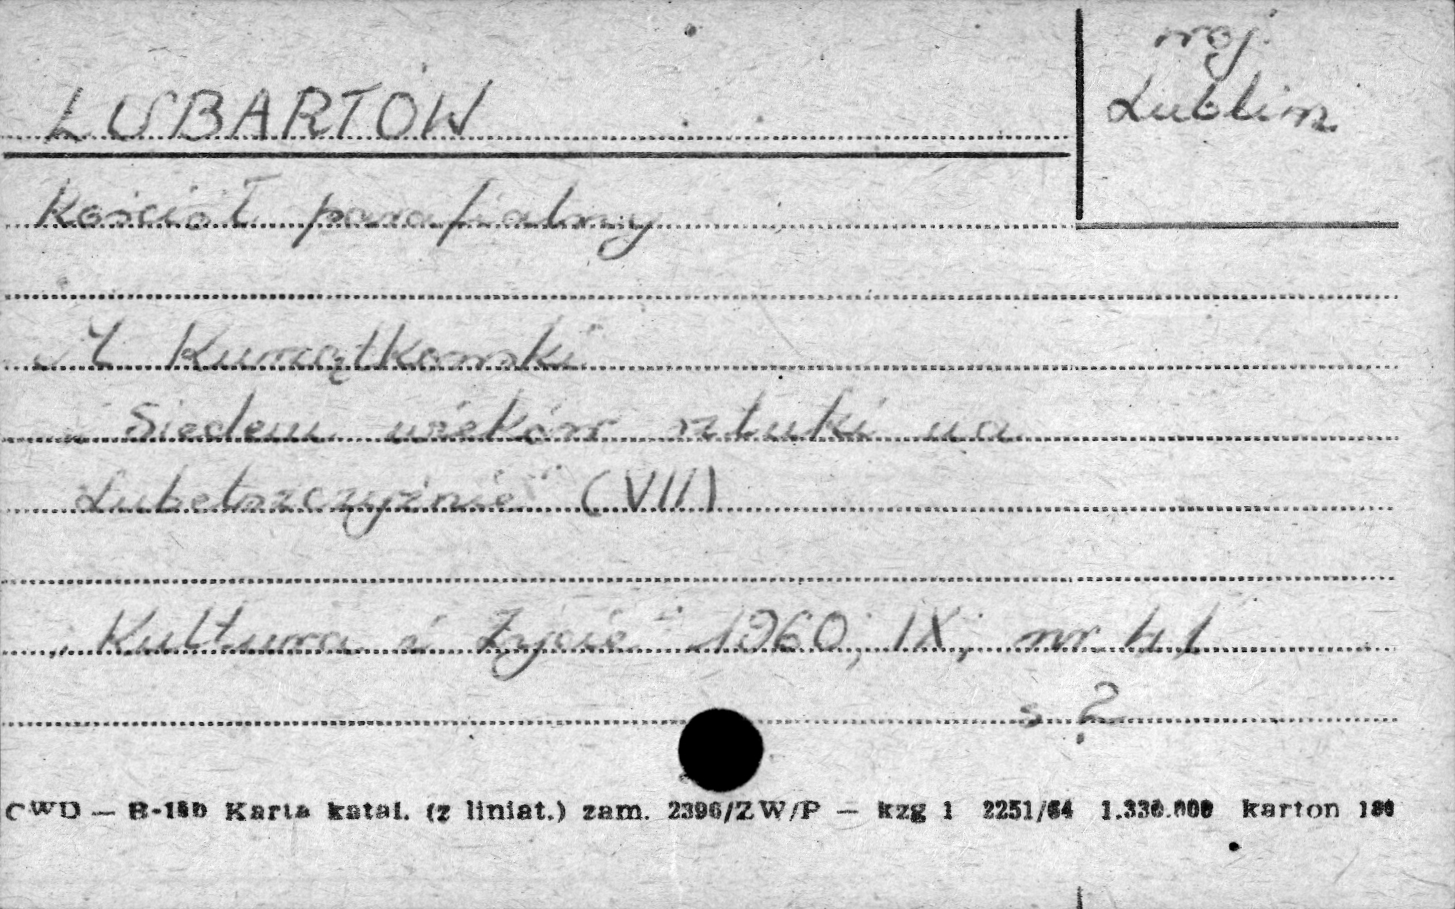 LUBARTÓW
woj.
Lublin
Kościół parafialny
H Kurzątkowski
"Siedem wieków sztuki na
Lubelszczyźnie" (VII)
"Kultura i Życie" 1960, IX, nr. 41
s ?
CWD — B-18b Karta katal. (z liniat.) zam. 2396/ZW/P — kzg 1 2251/64 1.330.000 karton 180